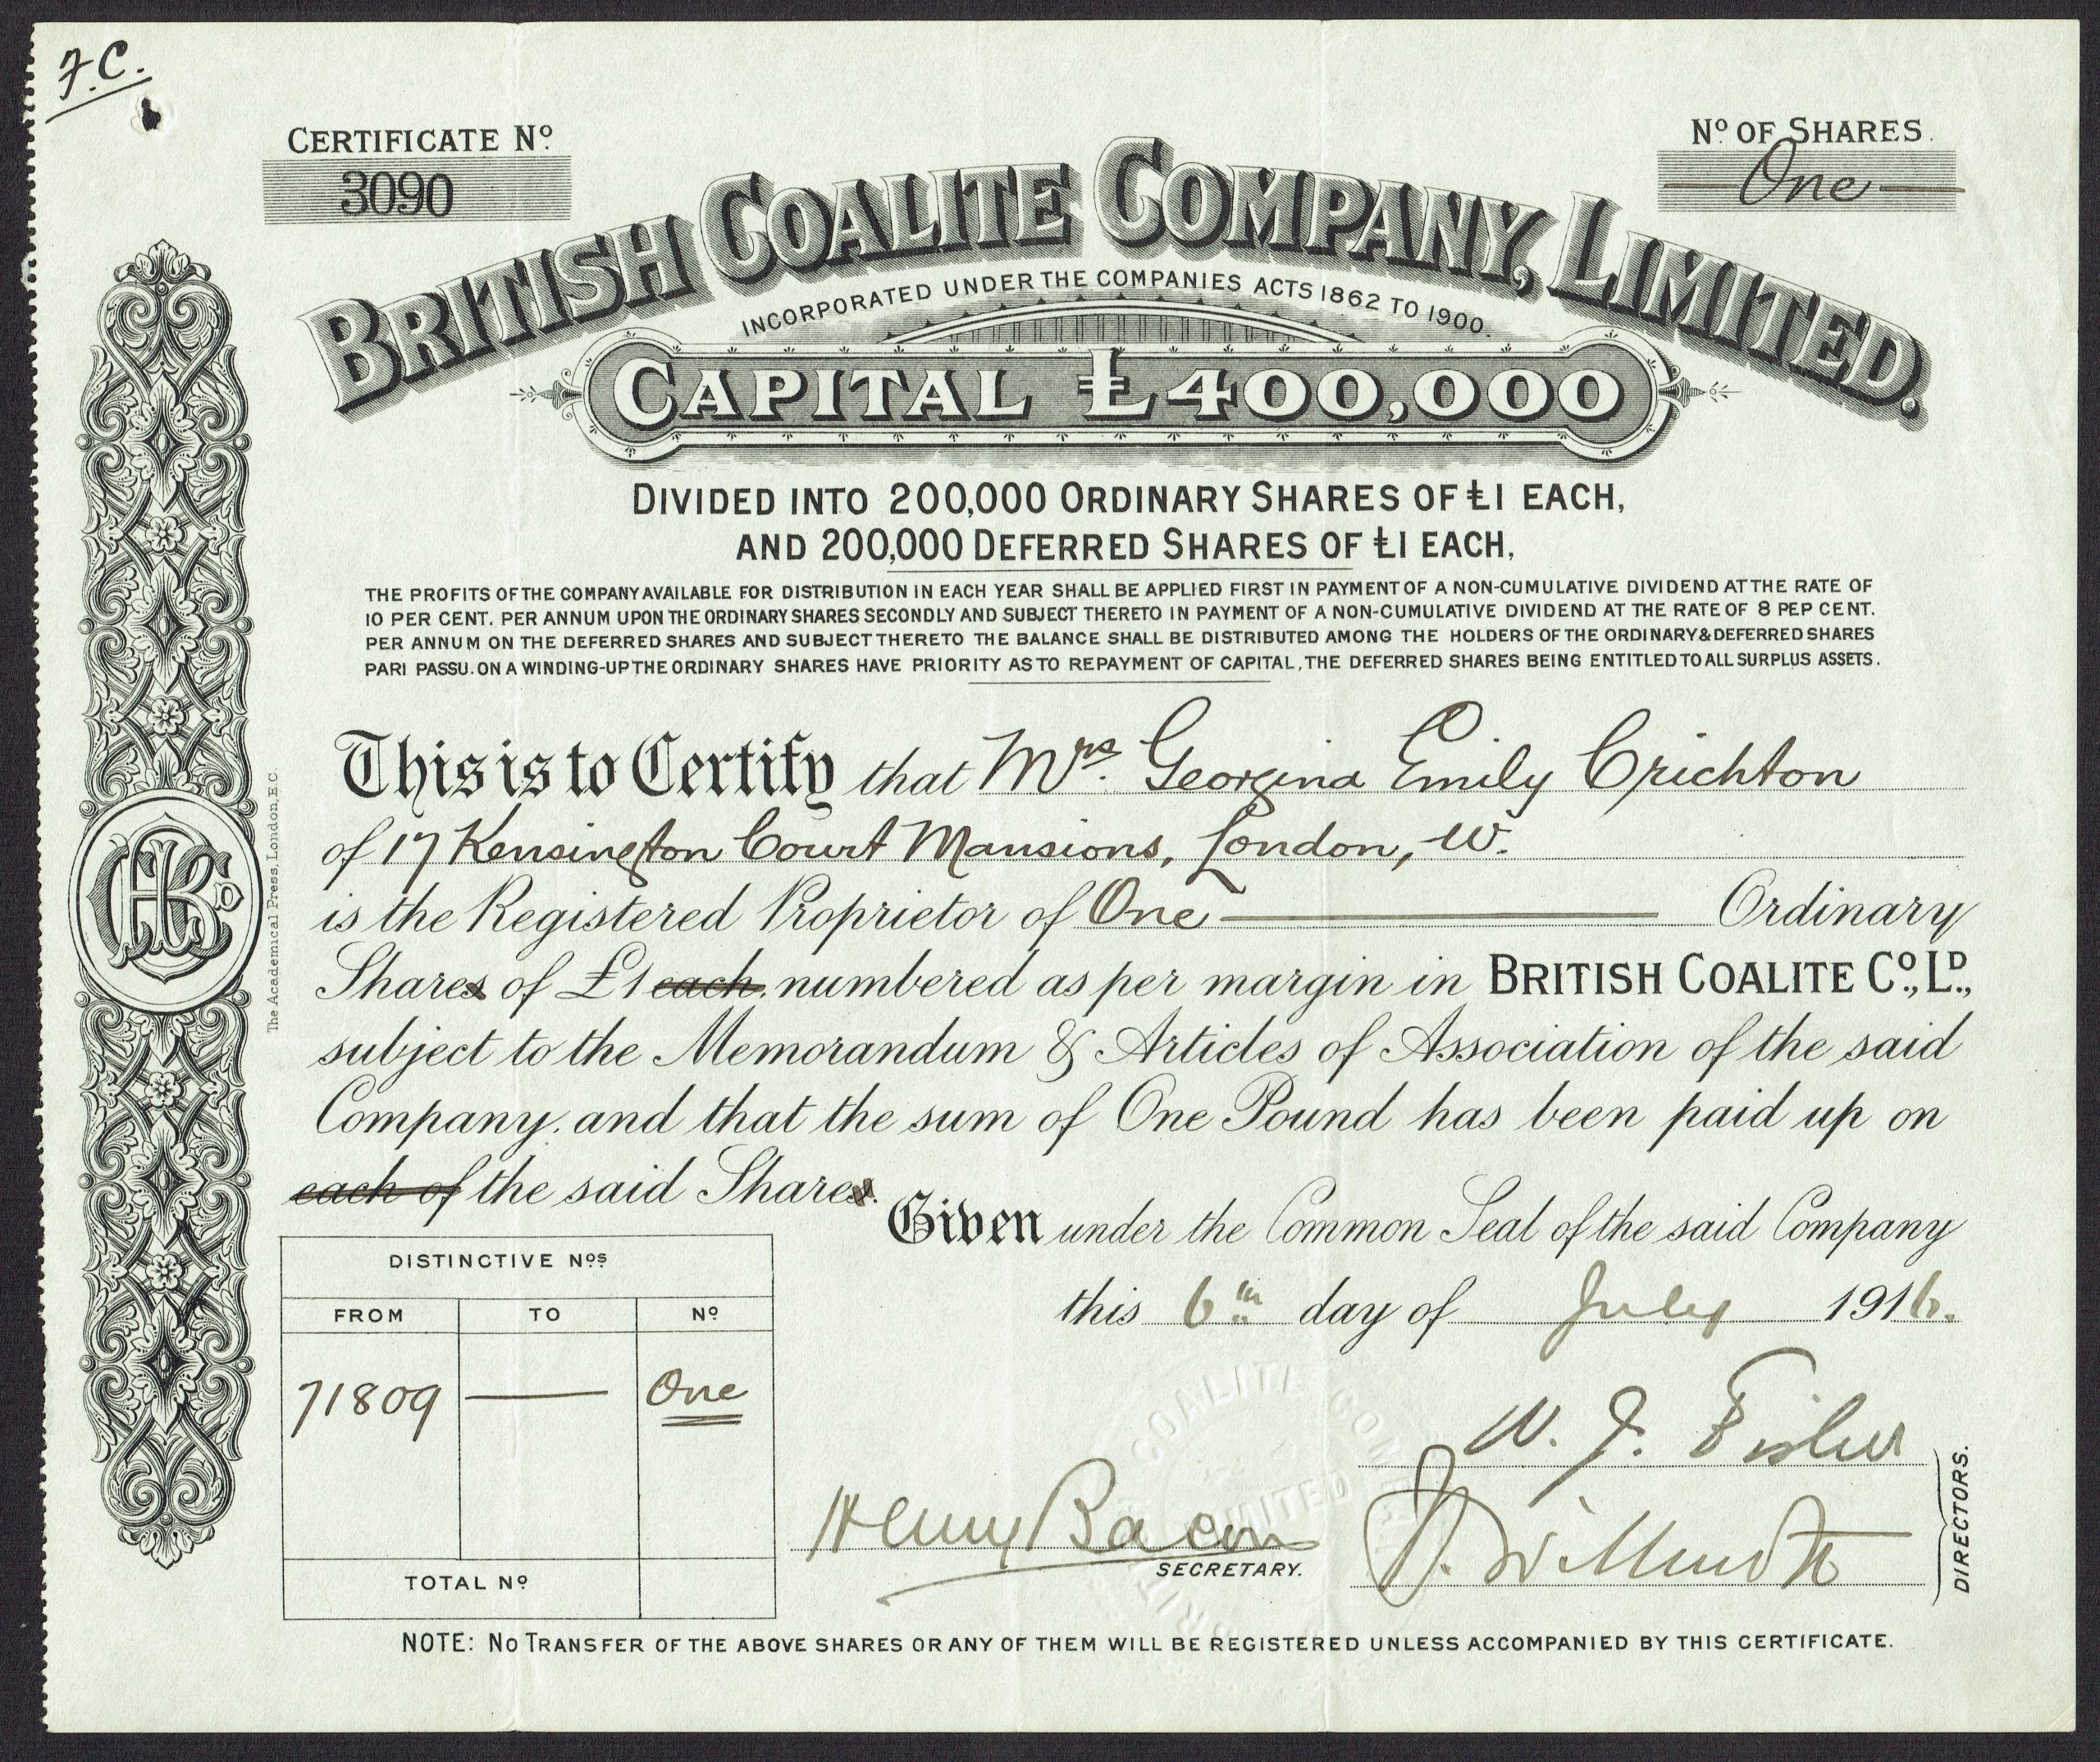 F.C.
CERTIFICATE Nº
3090
Nº OF SHARES.
One
BRITISH COALITE COMPANY, LIMITED.
INCORPORATED UNDER THE COMPANIES ACTS 1862 TO 1900.
CAPITAL £400,000
DIVIDED INTO 200,000 ORDINARY SHARES OF £1 EACH,
AND 200,000 DEFERRED SHARES OF £1 EACH,
THE PROFITS OF THE COMPANY AVAILABLE FOR DISTRIBUTION IN EACH YEAR SHALL BE APPLIED FIRST IN PAYMENT OF A NON-CUMULATIVE DIVIDEND AT THE RATE OF
10 PER CENT. PER ANNUM UPON THE ORDINARY SHARES SECONDLY AND SUBJECT THERETO IN PAYMENT OF A NON-CUMULATIVE DIVIDEND AT THE RATE OF 8 PEP CENT.
PER ANNUM ON THE DEFERRED SHARES AND SUBJECT THERETO THE BALANCE SHALL BE DISTRIBUTED AMONG THE HOLDERS OF THE ORDINARY & DEFERRED SHARES
PARI PASSU. ON A WINDING-UP THE ORDINARY SHARES HAVE PRIORITY AS TO REPAYMENT OF CAPITAL, THE DEFERRED SHARES BEING ENTITLED TO ALL SURPLUS ASSETS.
This is to Certify that Mrs. Georgina Emily Crichton
of 17 Kensington Court Mansions, London, W.
is the Registered Proprietor of One Ordinary
Shares of £1 each, numbered as per margin in BRITISH COALITE Cº., Lᴰ.,
subject to the Memorandum & Articles of Association of the said
Company. and that the sum of One Pound has been paid up on
each of the said Shares.
Given under the Common Seal of the said Company
this 6th day of July 1916.
DISTINCTIVE Nºˢ
FROM TO Nº
71809 — One
TOTAL Nº
W. J. Fisher
Henry Bacon
SECRETARY.
DIRECTORS.
COALITE COMPANY
LIMITED
NOTE: NO TRANSFER OF THE ABOVE SHARES OR ANY OF THEM WILL BE REGISTERED UNLESS ACCOMPANIED BY THIS CERTIFICATE.
The Academical Press, London, E.C.